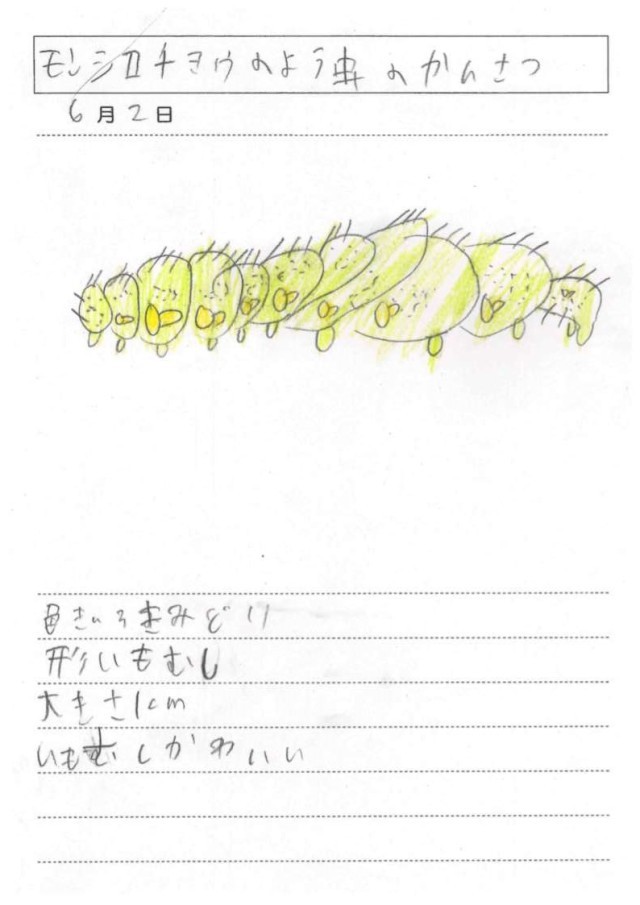 モンシロチョウのよう虫のかんさつ
6月2日
きいろきみどり
形いもむし
大きさ1cm
いもむしかわいい